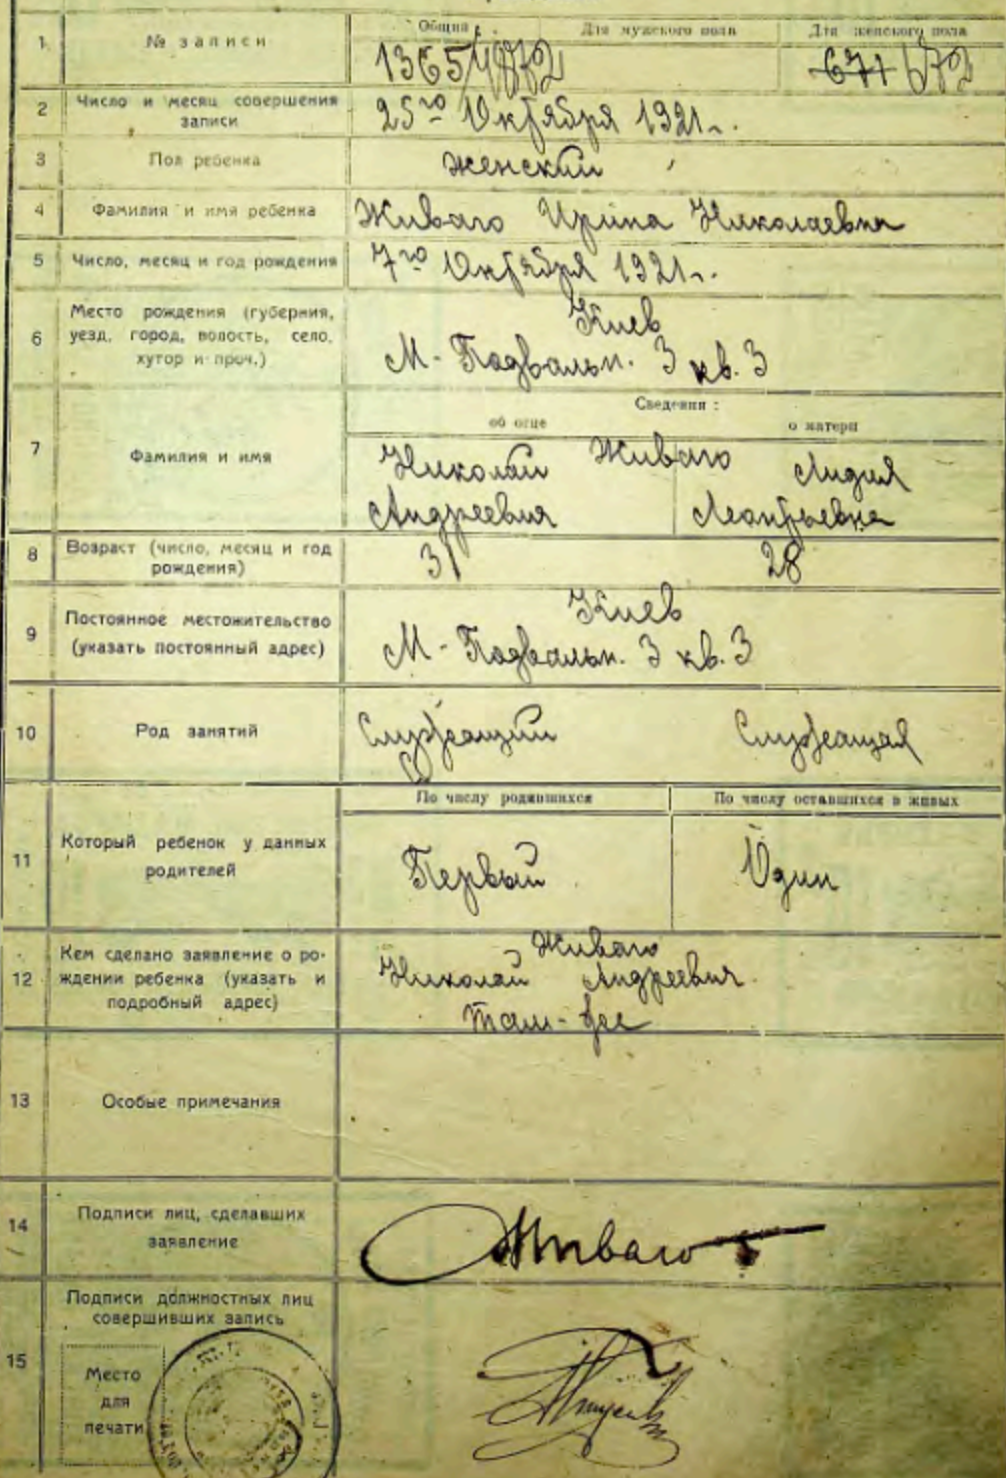 1 № записи Общий Для мужского пола Для женского пола
671 672
2 Число и месяц совершения записи 25го Октября 1921г.
3 Пол ребенка женский
4 Фамилия и имя ребенка Живаго Ирина Николаевна
5 Число, месяц и год рождения 7го Октября 1921г.
6 Место рождения (губерния,
уезд, город, волость, село,
хутор и проч.)
Киев
М-Подвальн. 3 кв. 3
Сведения:
об отце о матери
7 Фамилия и имя
Николай Живаго Лидия
Андреевич Леонтьевна
8 Возраст (число, месяц и год
рождения) 31 28
9 Постоянное местожительство
(указать постоянный адрес)
Киев
М-Подвальн. 3 кв. 3
10 Род занятий Служащий Служащая
По числу родившихся По числу оставшихся в живых
11 Который ребенок у данных
родителей
Первый Один
12 Кем сделано заявление о ро-
ждении ребенка (указать и
подробный адрес)
Живаго
Николай Андреевич
там-же
13 Особые примечания
14 Подписи лиц, сделавших
заявление
Живаго
Подписи должностных лиц
совершивших запись
15
Место
для
печати